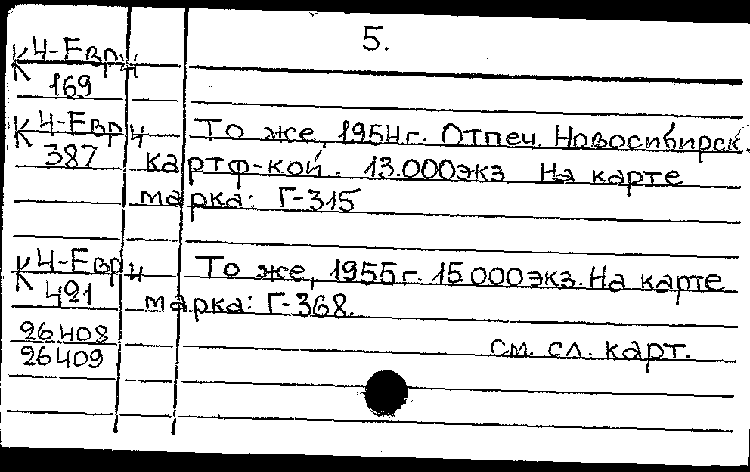 5.
К 4-Евр 4
169
К 4-Евр 4 То же, 1954г. Отпеч. Новосибирск.
387 картф-кой. 13.000экз На карте
марка: Г-315
К 4-Евр 4 То же, 1955г. 15 000экз. На карте
421 марка: Г-368.
26408
26409 см. сл. карт.